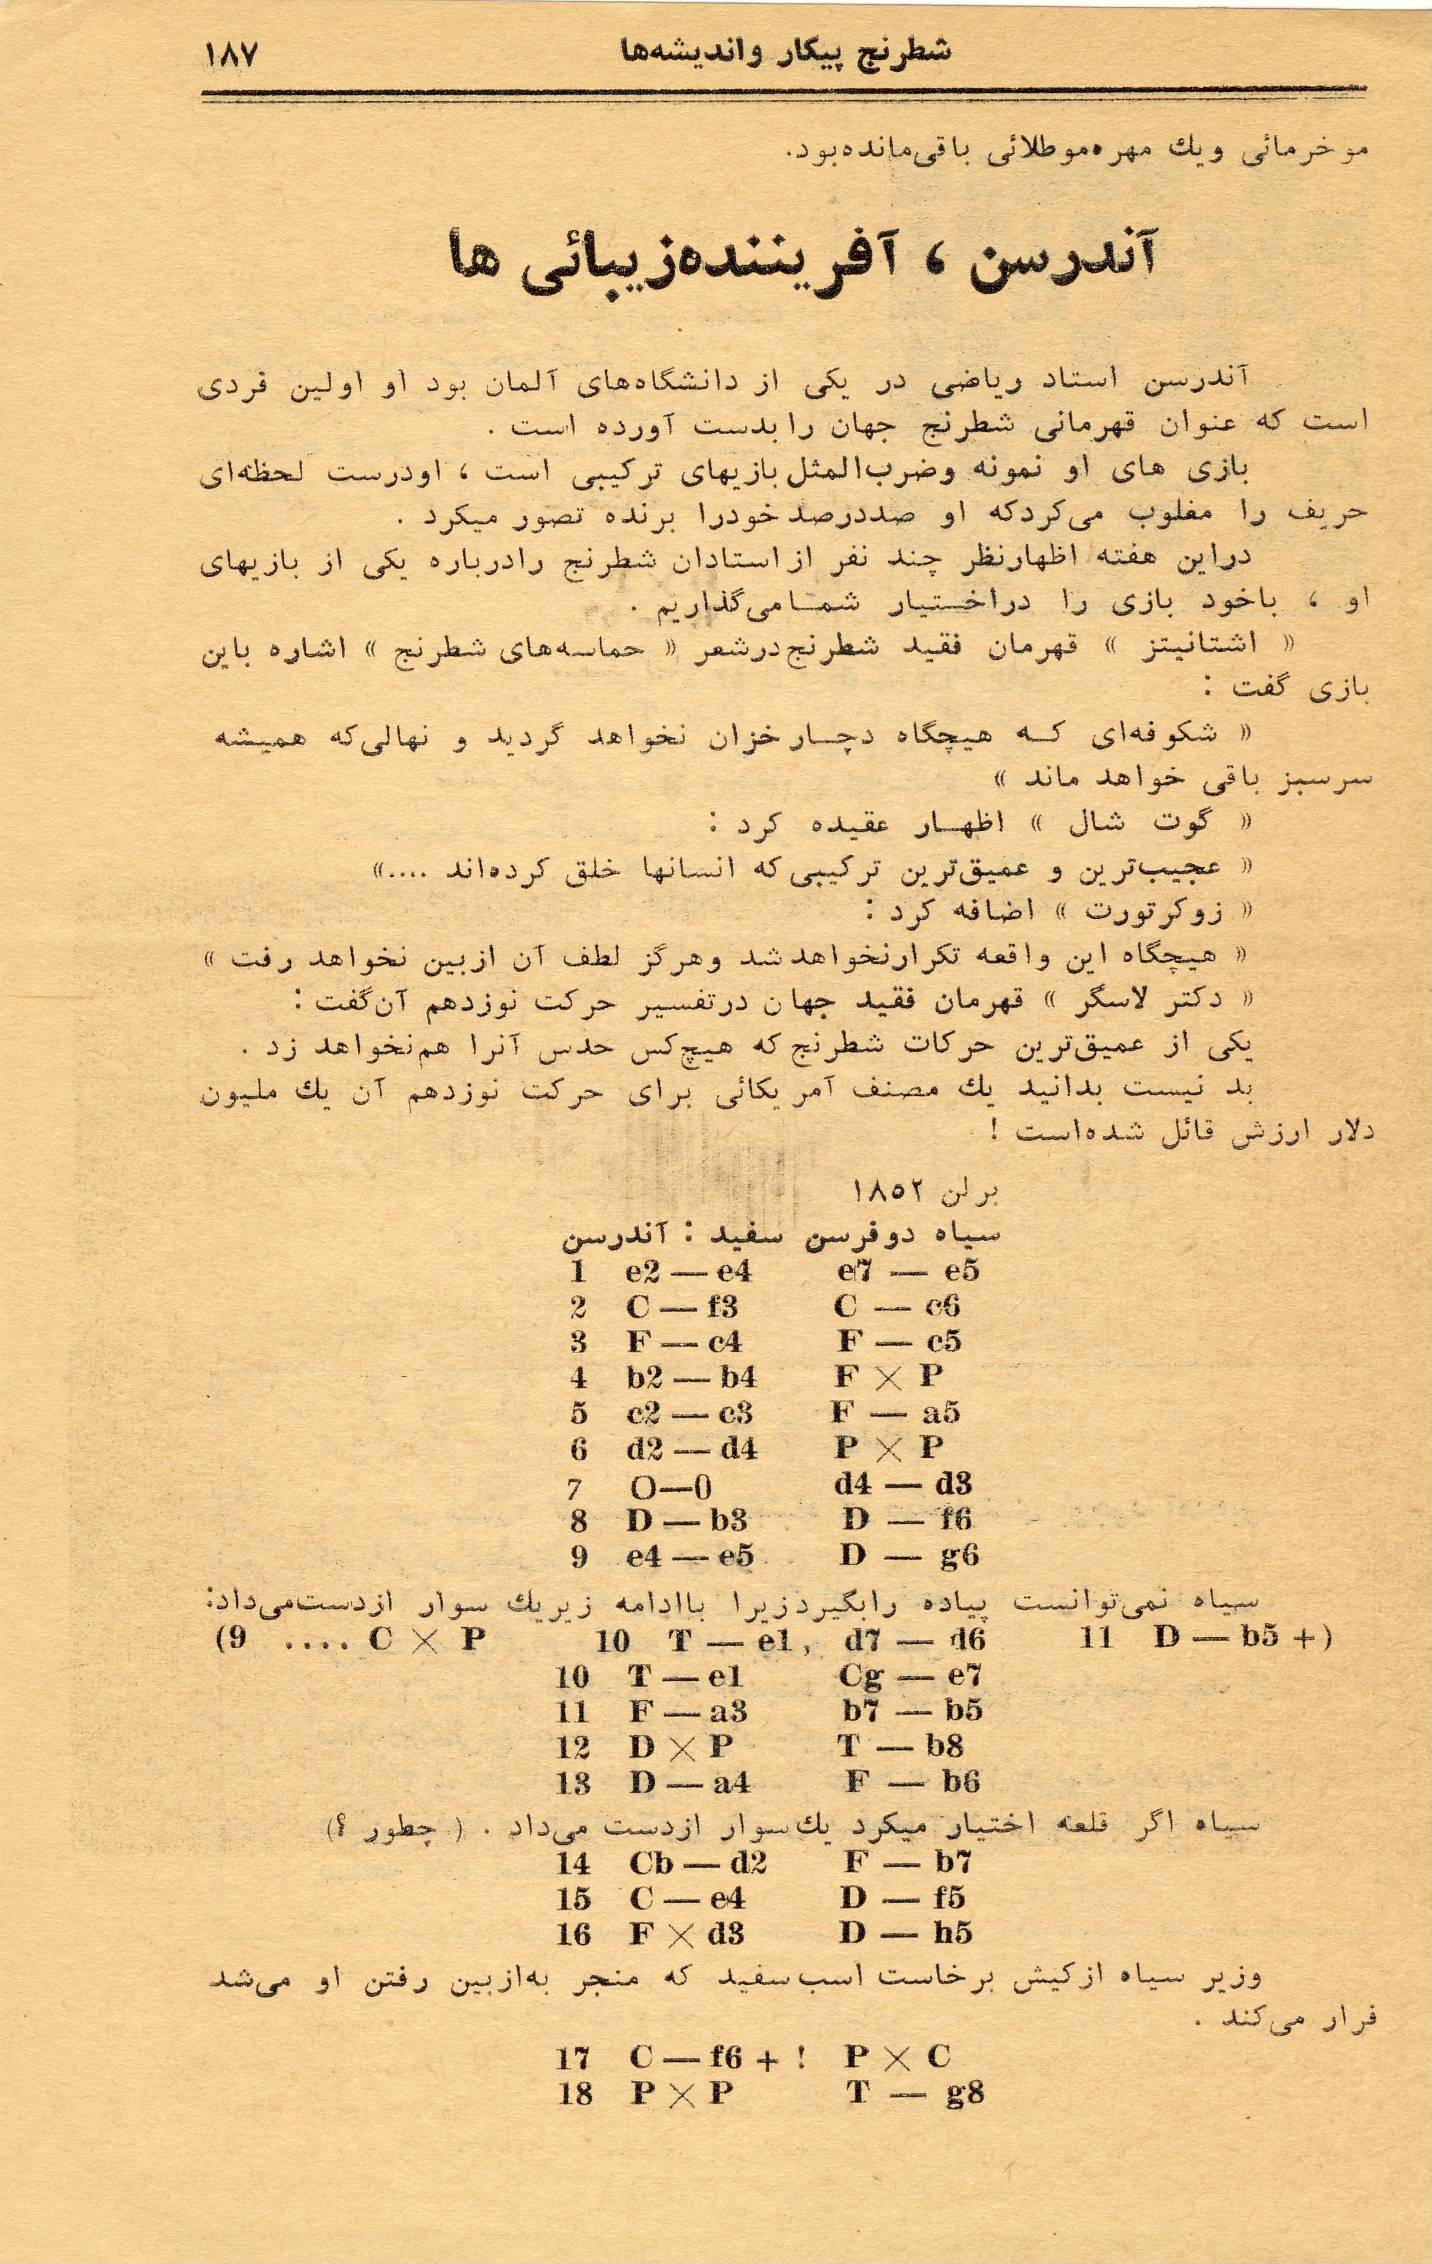 شطرنج پیکار واندیشه‌ها ۱۸۷
مو خرمائی ویك مهره‌موطلائی باقی‌مانده‌بود.
آندرسن ، آفریننده‌زیبائی ها
آندرسن استاد ریاضی در یکی از دانشگاه‌های آلمان بود او اولین فردی
است که عنوان قهرمانی شطرنج جهان را بدست آورده است .
بازی های او نمونه وضرب‌المثل بازیهای ترکیبی است ، اودرست لحظه‌ای
حریف را مغلوب می‌کردکه او صددرصد خودرا برنده تصور میکرد .
دراین هفته اظهارنظر چند نفر از استادان شطرنج رادرباره یکی از بازیهای
او ، باخود بازی را دراختیار شما می‌گذاریم .
« اشتانیتز » قهرمان فقید شطرنج‌درشعر « حماسه‌های شطرنج » اشاره باین
بازی گفت :
« شکوفه‌ای که هیچگاه دچار خزان نخواهد گردید و نهالی‌که همیشه
سرسبز باقی خواهد ماند »
« گوت شال » اظهار عقیده کرد :
« عجیب‌ترین و عمیق‌ترین ترکیبی‌که انسانها خلق کرده‌اند ....»
« زوکرتورت » اضافه کرد :
« هیچگاه این واقعه تکرارنخواهدشد وهرگز لطف آن ازبین نخواهد رفت »
« دکتر لاسگر » قهرمان فقید جهان درتفسیر حرکت نوزدهم آن‌گفت :
یکی از عمیق‌ترین حرکات شطرنج‌که هیچ‌کس حدس آنرا هم‌نخواهد زد .
بد نیست بدانید یك مصنف آمریکائی برای حرکت نوزدهم آن یك ملیون
دلار ارزش قائل شده‌است !
برلن ۱۸۵۲
سیاه دوفرسن سفید : آندرسن
1 e2 — e4 e7 — e5
2 C — f3 C — c6
3 F — c4 F — c5
4 b2 — b4 F × P
5 c2 — c3 F — a5
6 d2 — d4 P × P
7 O—0 d4 — d3
8 D — b3 D — f6
9 e4 — e5 D — g6
سیاه نمی‌توانست پیاده رابگیردزیرا باادامه زیریك سوار ازدست‌می‌داد:
(9 .... C × P 10 T — e1, d7 — d6 11 D — b5 +)
10 T — e1 Cg — e7
11 F — a3 b7 — b5
12 D × P T — b8
13 D — a4 F — b6
سیاه اگر قلعه اختیار میکرد یك‌سوار ازدست می‌داد . ( چطور ؟)
14 Cb — d2 F — b7
15 C — e4 D — f5
16 F × d3 D — h5
وزیر سیاه ازکیش برخاست اسب‌سفید که منجر به‌ازبین رفتن او می‌شد
فرار می‌کند .
17 C — f6 + ! P × C
18 P × P T — g8